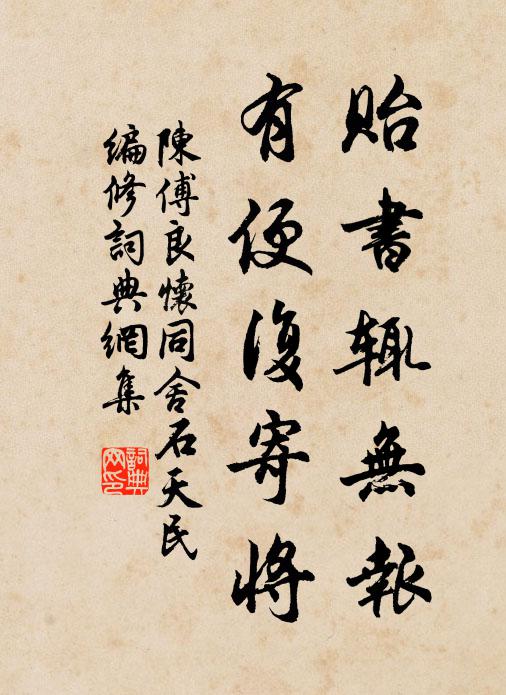 貽書辄無報
有便復寄將
陳傅良懷同舍石天民
編修詞典網集
詞典网印